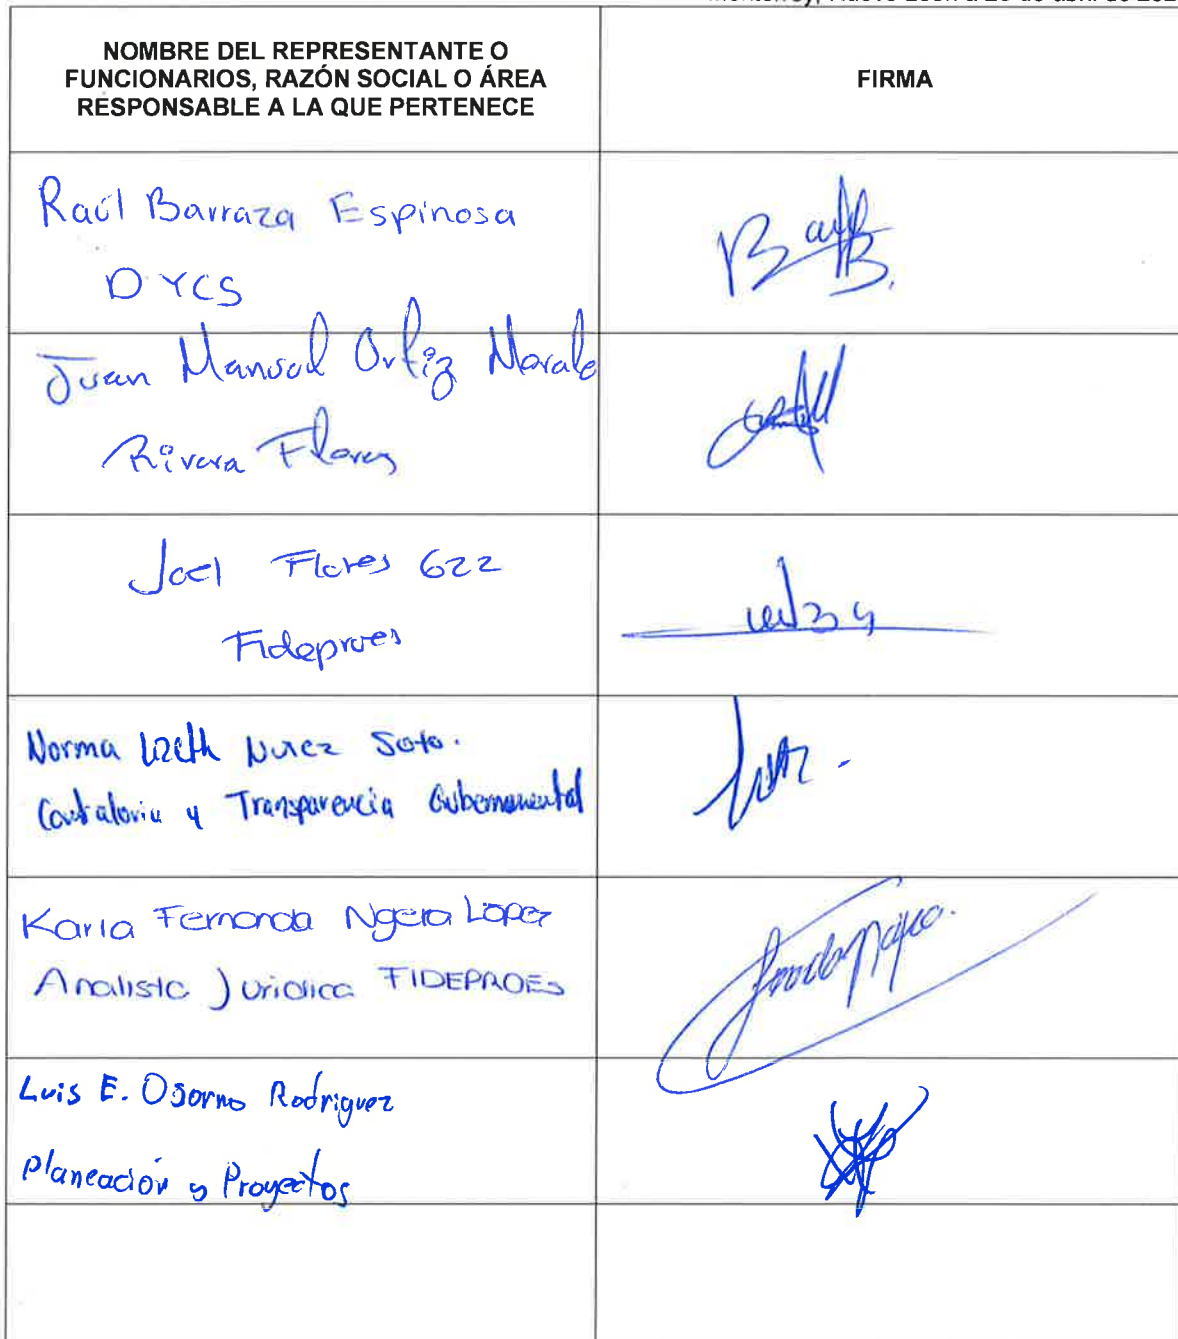 Monterrey, Nuevo León a 26 de abril de 202
NOMBRE DEL REPRESENTANTE O
FUNCIONARIOS, RAZÓN SOCIAL O ÁREA
RESPONSABLE A LA QUE PERTENECE
FIRMA
Raúl Barraza Espinosa
DYCS
Juan Manuel Ortiz Morale
Rivera Flores
Joel Flores 622
Fideproes
Norma Lizeth Nuñez Soto.
Contraloria y Transparencia Gubernamental
Karla Fernanda Ngera López
Analista Juridica FIDEPROES
Luis E. Osorno Rodriguez
Planeación y Proyectos